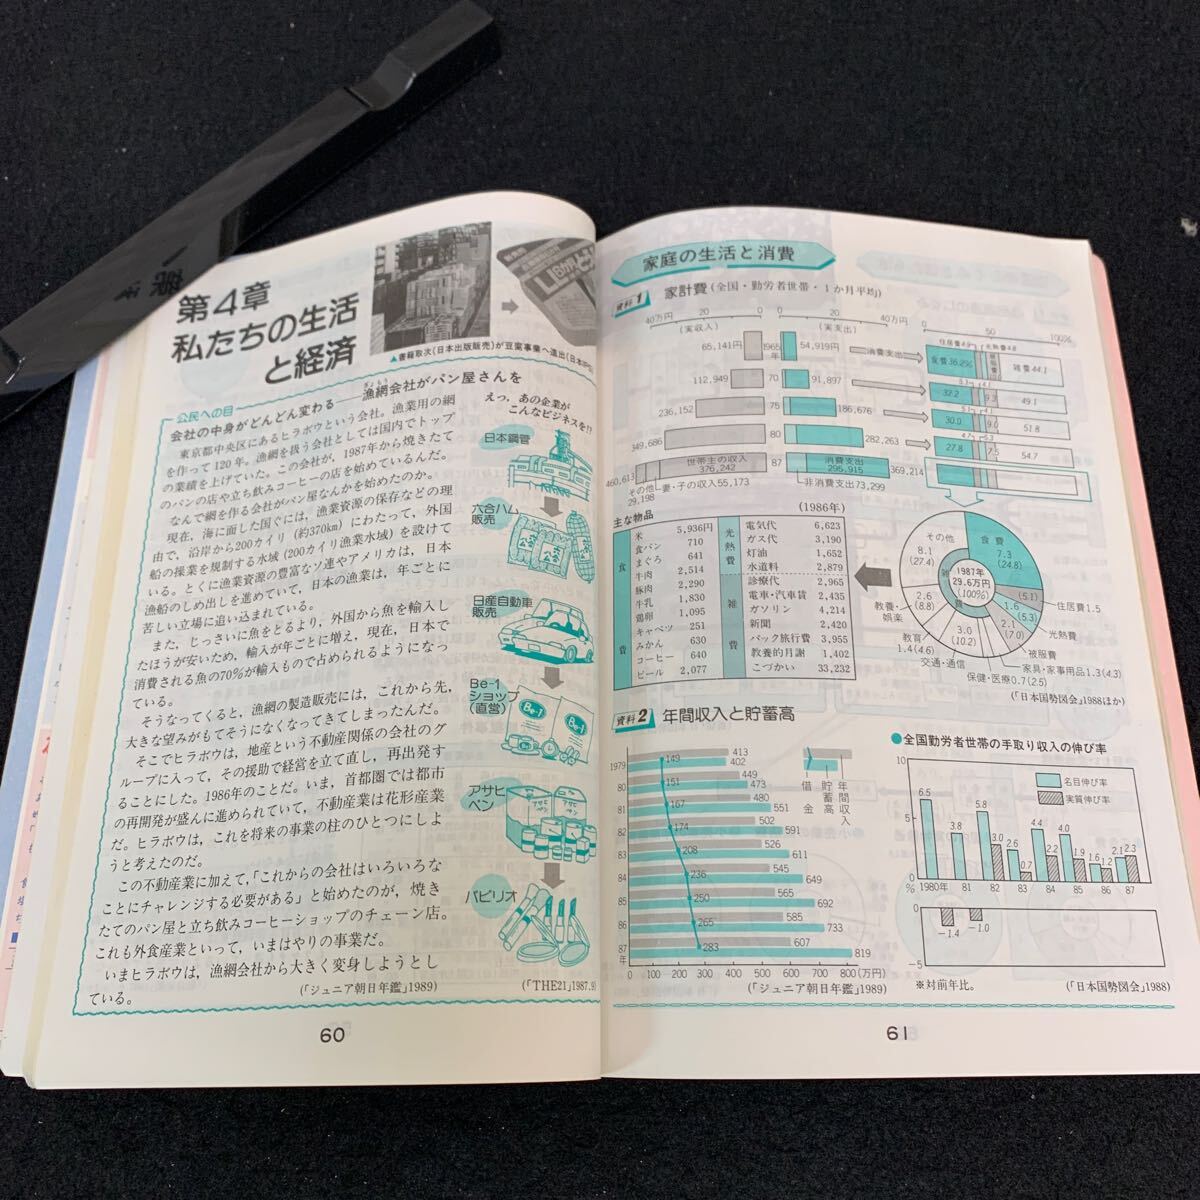 第4章
私たちの生活
と経済
▲書籍取次(日本出版販売)が豆腐事業へ進出(日本
公民への目
会社の中身がどんどん変わる——漁網会社がパン屋さんを
ぎょもう
東京都中央区にあるヒラボウという会社。漁業用の網
を作って120年。漁網を扱う会社としては国内でトップ
の業績を上げていた。この会社が，1987年から焼きたて
のパンの店や立ち飲みコーヒーの店を始めているんだ。
なんで網を作る会社がパン屋なんかを始めたのか。
現在，海に面した国ぐには，漁業資源の保存などの理
由で，沿岸から200カイリ(約370km)にわたって，外国
船の操業を規制する水域(200カイリ漁業水域)を設けて
いる。とくに漁業資源の豊富なソ連やアメリカは，日本
漁船のしめ出しを進めていて，日本の漁業は，年ごとに
苦しい立場に追い込まれている。
また，じっさいに魚をとるより，外国から魚を輸入し
たほうが安いため，輸入が年ごとに増え，現在，日本で
消費される魚の70％が輸入もので占められるようになっ
ている。
そうなってくると，漁網の製造販売には，これから先，
大きな望みがもてそうになくなってきてしまったんだ。
そこでヒラボウは，地産という不動産関係の会社のグ
ループに入って，その援助で経営を立て直し，再出発す
ることにした。1986年のことだ。いま，首都圏では都市
の再開発が盛んに進められていて，不動産業は花形産業
だ。ヒラボウは，これを将来の事業の柱のひとつにしよ
うと考えたのだ。
この不動産業に加えて，「これからの会社はいろいろな
ことにチャレンジする必要がある」と始めたのが，焼き
たてのパン屋と立ち飲みコーヒーショップのチェーン店。
これも外食産業といって，いまはやりの事業だ。
いまヒラボウは，漁網会社から大きく変身しようとし
ている。
(「ジュニア朝日年鑑」1989)
えっ，あの企業が
こんなビジネスを!?
日本鋼管
六合ハム
販売
日産自動車
販売
Be-1
ショップ
(直営)
Be-1
Be-1
アサヒ
ペン
パピリオ
(「THE21」1987.9)
60
家庭の生活と消費
資料1 家計費(全国・勤労者世帯・1か月平均)
40万円 20 0 0 20 40万円 0 50 100%
(実収入) (実支出)
住居費4.9 光熱費4.8
65,141円 1965年 54,919円 消費支出 食費36.2% 雑費44.1
112,949 70 91,897 32.2 5.1 9.3 4.1 49.1
236,152 75 186,676 30.0 5.1 9.0 4.1 51.8
349,686 80 282,263 27.8 4.7 7.5 5.3 54.7
460,613 世帯主の収入 376,242 87 消費支出 295,915 369,214
その他 29,198 妻・子の収入55,173 非消費支出73,299
主な物品 (1986年)
食費
米 5,936円
食パン 710
まぐろ 641
牛肉 2,514
豚肉 2,290
牛乳 1,830
鶏卵 1,095
キャベツ 251
みかん 630
コーヒー 640
ビール 2,077
光熱費
電気代 6,623
ガス代 3,190
灯油 1,652
水道料 2,879
雑費
診療代 2,965
電車・汽車賃 2,435
ガソリン 4,214
新聞 2,420
パック旅行費 3,955
教養的月謝 1,402
こづかい 33,232
1987年
29.6万円
(100%)
食費
7.3
(24.8)
(5.1)
住居費1.5
1.6
(5.3)
光熱費
2.1
(7.0)
被服費
家具・家事用品1.3(4.3)
保健・医療0.7(2.5)
3.0
(10.2)
交通・通信
教育
1.4(4.6)
2.6
(8.8)
教養・
娯楽
その他
8.1
(27.4)
雑
費
(「日本国勢図会」1988ほか)
資料2 年間収入と貯蓄高
借金
貯蓄高
年間収入
1979 149 413 402
80 151 449 473
81 167 480 551
82 174 502 591
83 208 526 611
84 236 545 649
85 250 565 692
86 265 585 733
87年 283 607 819
0 100 200 300 400 500 600 700 800(万円)
(「ジュニア朝日年鑑」1989)
●全国勤労者世帯の手取り収入の伸び率
名目伸び率
実質伸び率
10
5
0
%
6.5 3.8 5.8 3.0 2.6 0.7 4.4 2.2 4.0 1.9 1.6 1.2 2.1 2.3
1980年 81 82 83 84 85 86 87
0
−1.4 −1.0
−5
※対前年比。
(「日本国勢図会」1988)
61